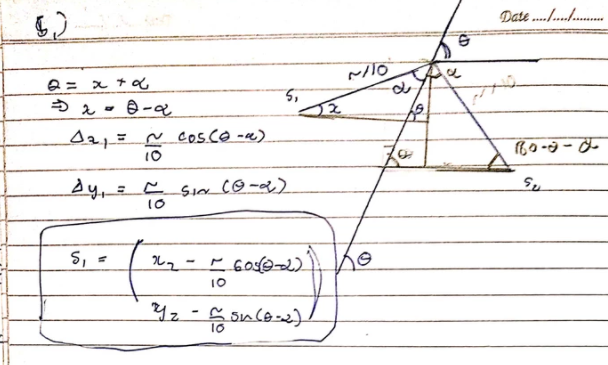 Date ..../..../.........
θ = x + α
⇒ x = θ-α
Δx₁ = r/10 cos(θ-α)
Δy₁ = r/10 sin(θ-α)
S₁ = ( x₂ - r/10 cos(θ-α)
y₂ - r/10 sin(θ-α) )
θ
r/10
α
α
r/10
S₁
x
θ
θ
180-θ-α
S₂
θ